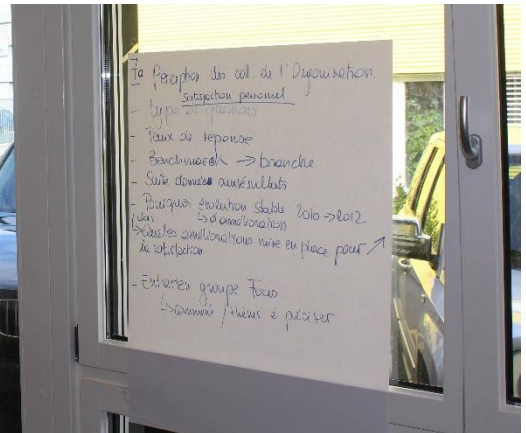 7a Perception des coll. de l'Organisation.
Satisfaction personnel
- type de questions
- Taux de réponse
- Benchmarck → branche
- Suite données aux résultats
- Pourquoi évolution stable 2010 → 2012
↳ ø amélioration
↳ Quelles améliorations mise en place pour ↗
la satisfaction
- Entretien groupe Focus
↳ comment / thèmes à préciser